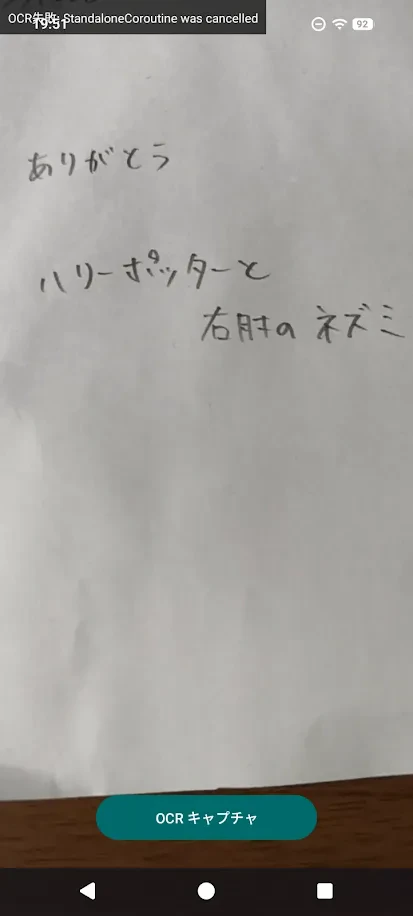 OCR失敗: StandaloneCoroutine was cancelled
19:51
92
ありがとう
ハリーポッターと
右肘の ネズミ
OCR キャプチャ